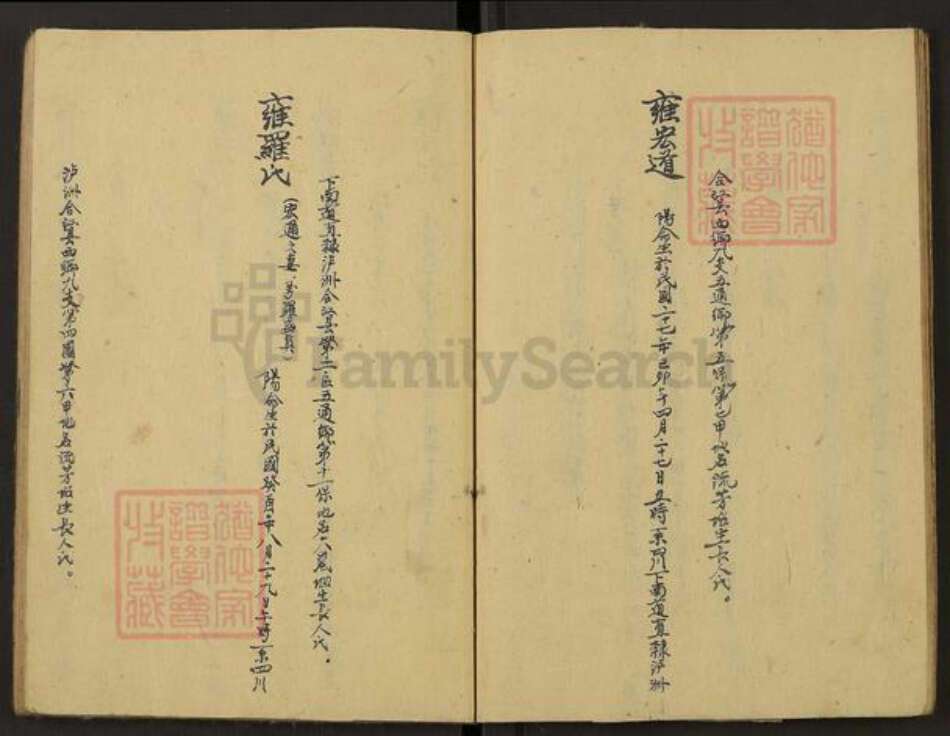 泸州合江县西鄉九支第四團第六甲地名流芳坵生長人氏。
雍羅氏
(宏通之妻
陽命生於民國癸酉年八月二十九日子時系四川
下南道直隸泸州合江县第二區五通鄉第十一保地名八 坵生長人氏。
雍宏道
陽命生於民國二十七年己卯年四月二十七日丑時系四川下南道直隸泸州
合江县西鄉九支五通鄉第五保第七甲地名流芳坵生長人氏。
猶他家譜學會收藏
猶他家譜學會收藏
FamilySearch